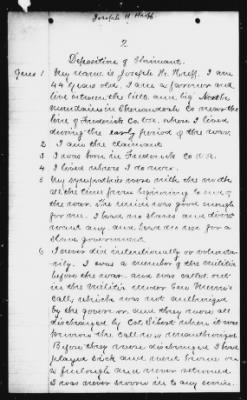 Joseph H Huff
2
Deposition of Claimant.
My name is Joseph H. Huff. I am
44 years old. I am a farmer and
live between the little and big North
mountains in Shenandoah Co near the
line of Frederick Co Va, where I lived
during the early period of the war.
2 I am the claimant
3 I was born in Frederick Co Va.
4 I lived where I do now.
5 My sympathies were with the north
all the time from beginning to end of
the war. The union was good enough
for me. I had no slaves and didn't
want any, and had no use for a
slave government.
6 I never did intentionally or voluntar-
ily. I was a member of the Militia
before the war, and was called out
in the Militia under Gen
call, which was not authorized
by the governor, and they were all
discharged by Col Sibert when it was
known the call was unauthorized.
Before they were discharged I had
played sick and went home on
a furlough and never returned
I was never sworn in to any service.